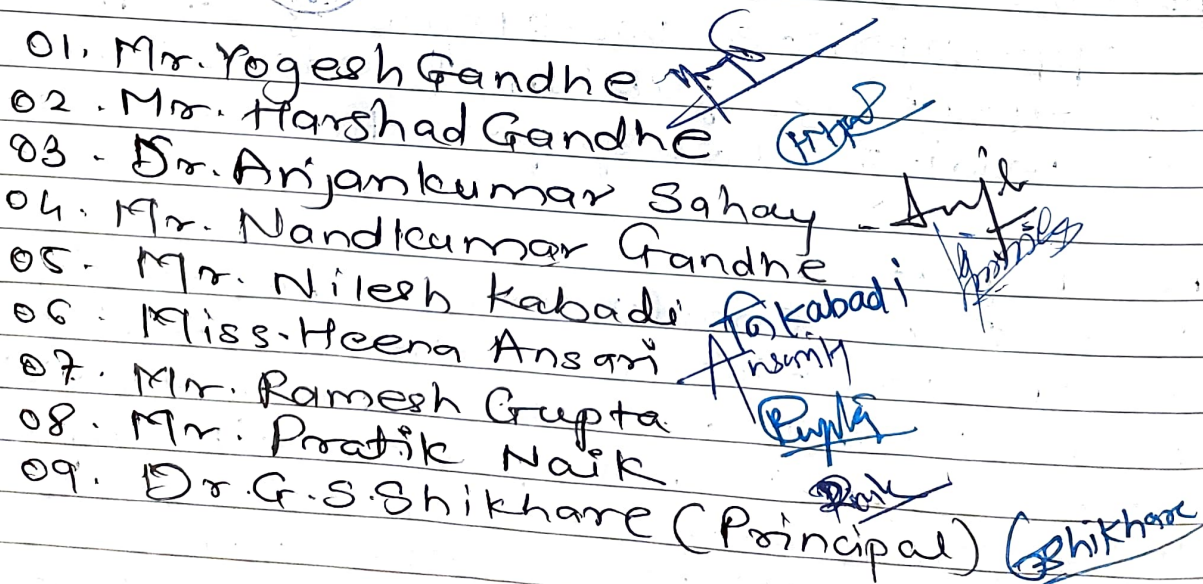 01. Mr. Yogesh Gandhe
02. Mr. Harshad Gandhe
03 - Dr. Arijankumar Sahay -
04. Mr. Nandkumar Gandhe
05. Mr. Nilesh Kabadi Kabadi
06. Miss-Heena Ansari AnsariH
07. Mr. Ramesh Gupta
08. Mr. Pratik Naik
09. Dr. G.S. Shikhare (Principal) Gshikhare